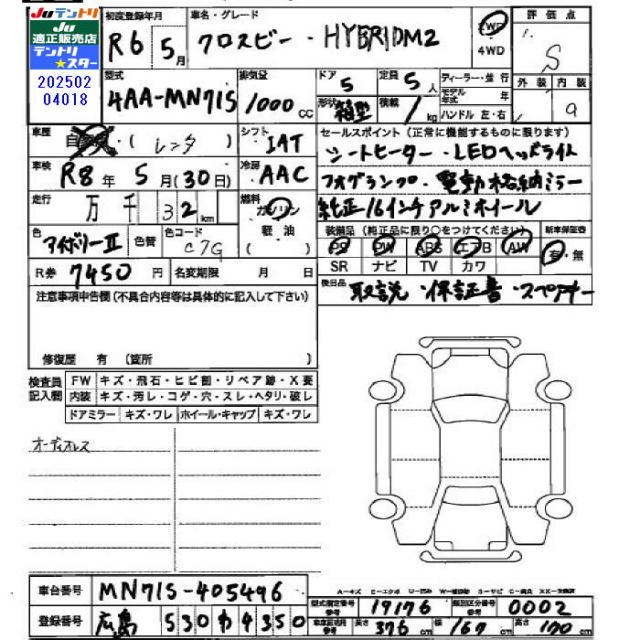 Juテントリ
Ju
適正販売店
テントリ
★スター
202502
04018
初度登録年月
R6 5月
車名・グレード
クロスビー・HYBRIDM2
FWD
4WD
評価点
S
型式
4AA-MN71S
排気量
1000cc
ドア
5
定員
5人
形状
箱型
積載
1kg
ディーラー・並行
モデル年式 年
ハンドル 左・右
外装 内装
a
車歴
自家用・(レンタ)
シフト
IAT
セールスポイント (正常に機能するものに限ります)
シートヒーター・LEDヘッドライト
車検
R8年5月(30日)
冷房
AAC
フォグランプ・電動格納ミラー
走行
万千32km
燃料
ガソリン
軽油
( )
純正16インチアルミホイール
色
アイボリーII
色替
色コード
C7G
装備品 (純正品に限り○をつけてください)
PS PW ABS エアB AW
SR ナビ TV カワ
新車保証書
有・無
R券 7450円 名変期限 月 日
後日品 取説・保証書・スペアキー
注意事項申告欄(不具合内容等は具体的に記入して下さい)
修復歴 有 (箇所 )
検査員
記入欄
FW キズ・飛石・ヒビ割・リペア跡・X要
内装 キズ・汚レ・コゲ・穴・スレ・ヘタリ・破レ
ドアミラー キズ・ワレ ホイール・キャップ キズ・ワレ
オーディオレス
車台番号 MN71S-405496
登録番号 広島 530わ4350
型式指定番号 参考 19176
類別区分番号 参考 0002
長さ 376cm 幅 167cm 高さ 170cm